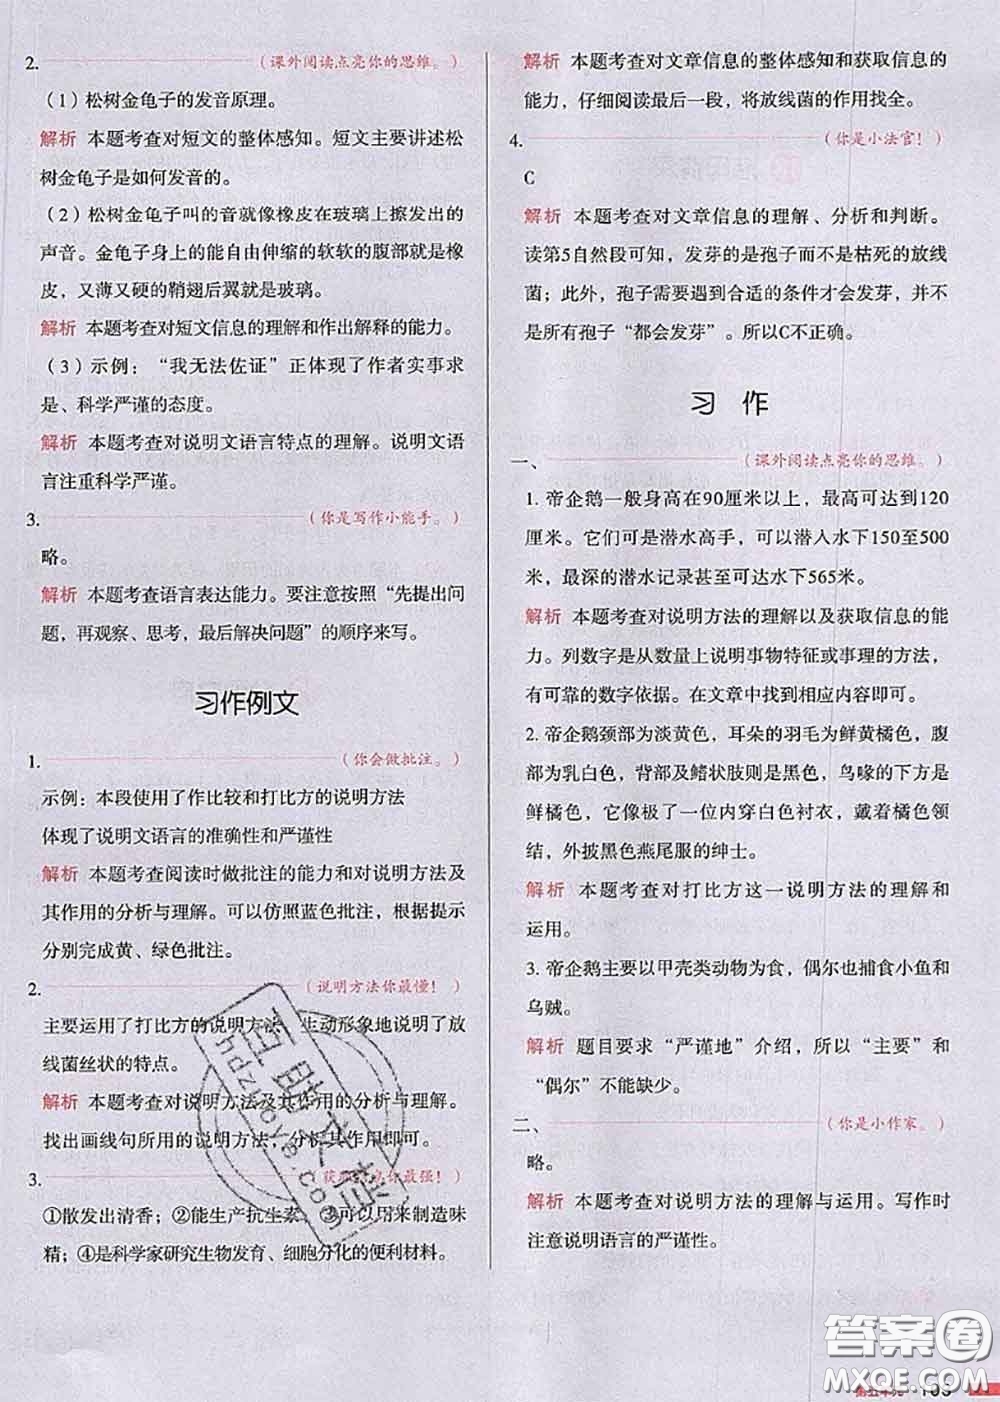 2.（课外阅读点亮你的思维。）
（1）松树金龟子的发音原理。
解析 本题考查对短文的整体感知。短文主要讲述松
树金龟子是如何发音的。
（2）松树金龟子叫的音就像橡皮在玻璃上擦发出的
声音。金龟子身上的能自由伸缩的软软的腹部就是橡
皮，又薄又硬的鞘翅后翼就是玻璃。
解析 本题考查对短文信息的理解和作出解释的能力。
（3）示例：“我无法佐证”正体现了作者实事求
是、科学严谨的态度。
解析 本题考查对说明文语言特点的理解。说明文语
言注重科学严谨。
3.（你是写作小能手。）
略。
解析 本题考查语言表达能力。要注意按照“先提出问
题，再观察、思考，最后解决问题”的顺序来写。
习作例文
1.（你会做批注。）
示例：本段使用了作比较和打比方的说明方法
体现了说明文语言的准确性和严谨性
解析 本题考查阅读时做批注的能力和对说明方法及
其作用的分析与理解。可以仿照蓝色批注，根据提示
分别完成黄、绿色批注。
2.（说明方法你最懂！）
主要运用了打比方的说明方法，生动形象地说明了放
线菌丝状的特点。
解析 本题考查对说明方法及其作用的分析与理解。
找出画线句所用的说明方法，分析其作用即可。
3.（获取信息你最强！）
①散发出清香；②能生产抗生素；③可以用来制造味
精；④是科学家研究生物发育、细胞分化的便利材料。
解析 本题考查对文章信息的整体感知和获取信息的
能力，仔细阅读最后一段，将放线菌的作用找全。
4.（你是小法官！）
C
解析 本题考查对文章信息的理解、分析和判断。
读第5自然段可知，发芽的是孢子而不是枯死的放线
菌；此外，孢子需要遇到合适的条件才会发芽，并不
是所有孢子“都会发芽”。所以C不正确。
习 作
一、（课外阅读点亮你的思维。）
1. 帝企鹅一般身高在90厘米以上，最高可达到120
厘米。它们是潜水高手，可以潜入水下150至500
米，最深的潜水记录甚至可达水下565米。
解析 本题考查对说明方法的理解以及获取信息的能
力。列数字是从数量上说明事物特征或事理的方法，
有可靠的数字依据。在文章中找到相应内容即可。
2. 帝企鹅颈部为淡黄色，耳朵的羽毛为鲜黄橘色，腹
部为乳白色，背部及鳍状肢则是黑色，鸟喙的下方是
鲜橘色。它像极了一位内穿白色衬衣，戴着橘色领
结，外披黑色燕尾服的绅士。
解析 本题考查对打比方这一说明方法的理解和
运用。
3. 帝企鹅主要以甲壳类动物为食，偶尔也捕食小鱼和
乌贼。
解析 题目要求“严谨地”介绍，所以“主要”和
“偶尔”不能缺少。
二、（你是小作家。）
略。
解析 本题考查对说明方法的理解与运用。写作时
注意说明语言的严谨性。
答案圈
MXQE.COM
第五单元 103